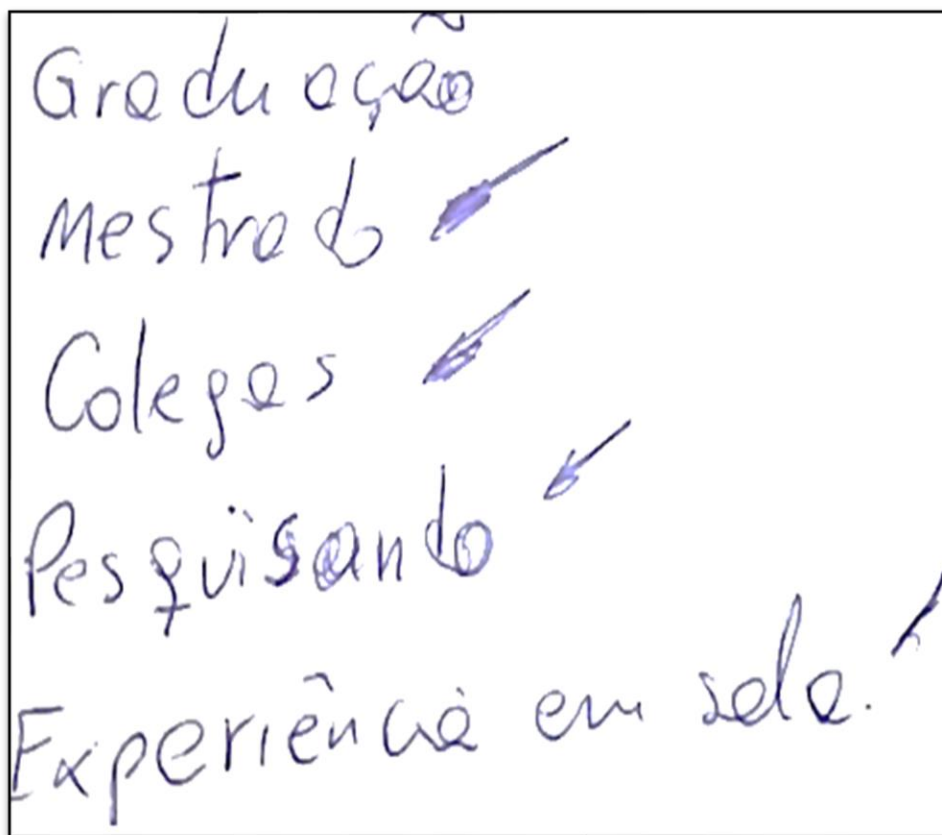 Graduação
Mestrado
Colegas
Pesquisando
Experiência em sala.